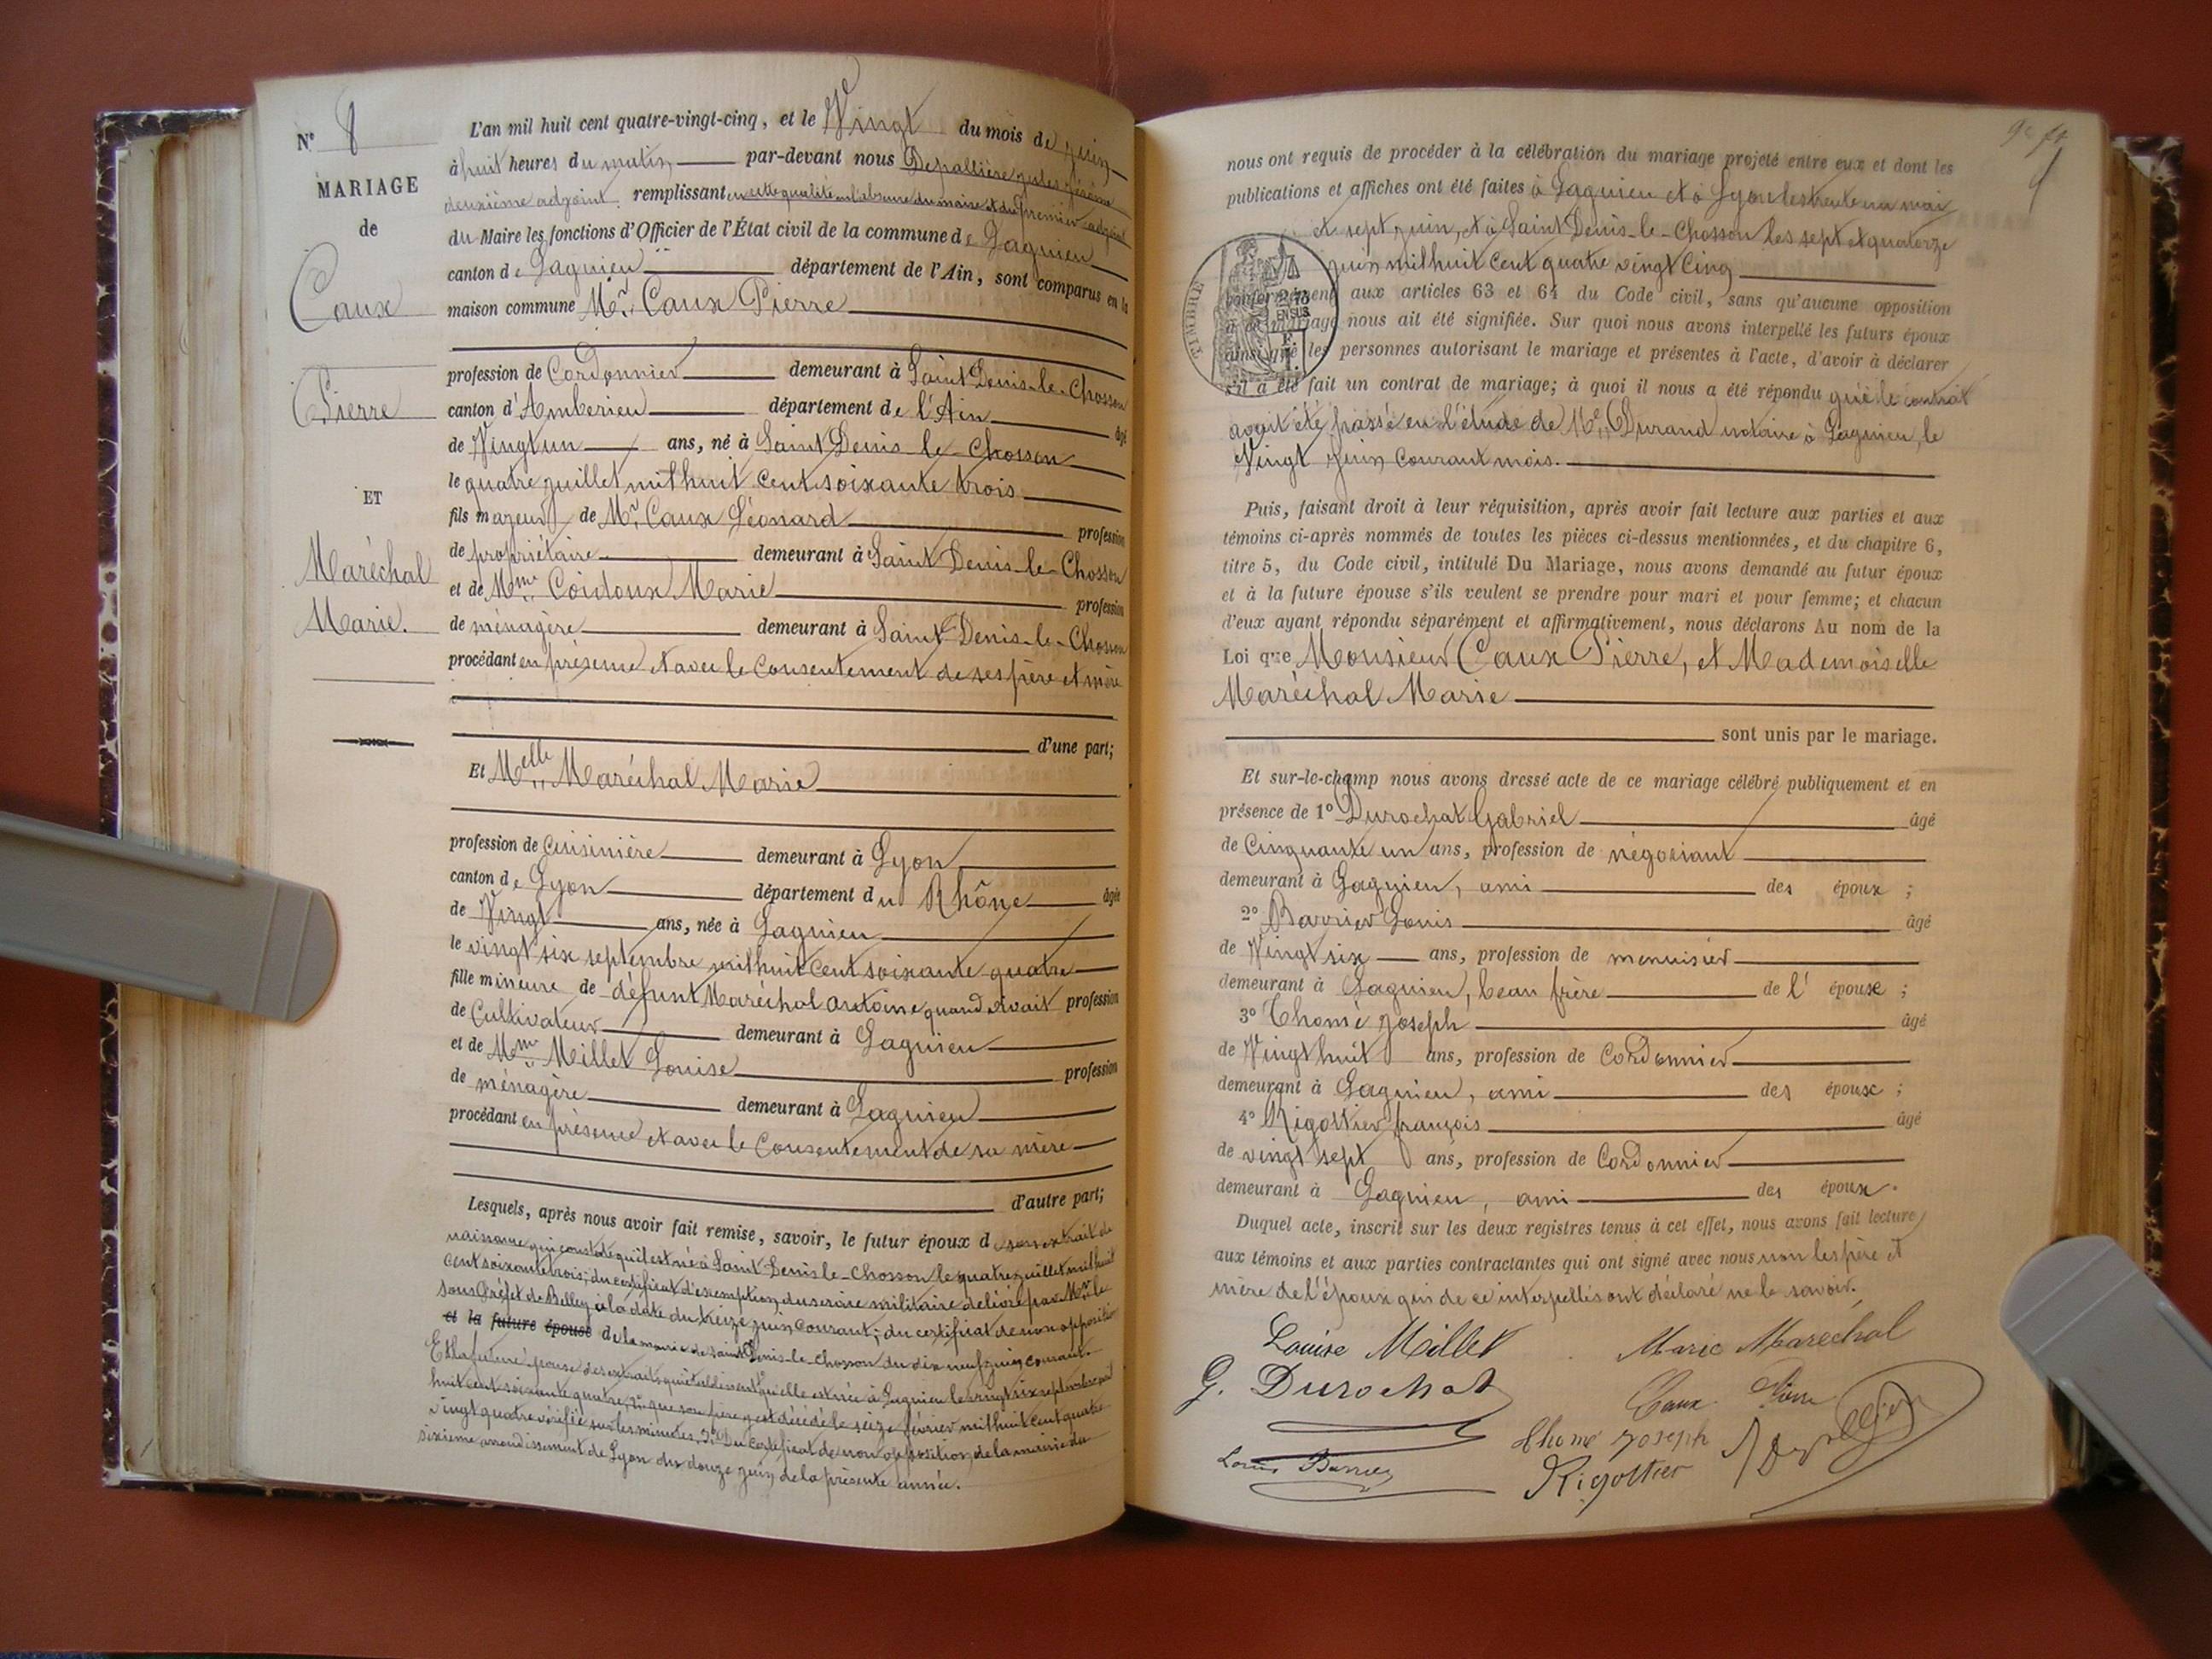 N° 8
MARIAGE
de
Caux
Pierre
ET
Maréchal
Marie.
L'an mil huit cent quatre-vingt-cinq, et le Vingt du mois de juin
à huit heures du matin, par-devant nous Depallière jules
deuxième adjoint, remplissant en cette qualité en l'absence du maire et du premier adjoint
du Maire les fonctions d'Officier de l'État civil de la commune de Lagnieu
canton de Lagnieu département de l'Ain, sont comparus en la
maison commune Mr. Caux Pierre
profession de Cordonnier demeurant à Saint Denis-le-Chosson
canton d'Amberieu département de l'Ain âgé
de Vingt un ans, né à Saint Denis-le-Chosson
le quatre juillet mil huit cent soixante trois
fils majeur de Mr. Caux Léonard profession
de propriétaire demeurant à Saint Denis-le-Chosson
et de Mme Coidoux Marie profession
de ménagère demeurant à Saint Denis-le-Chosson
procédant en présence et avec le consentement de ses père et mère
d'une part;
Et Melle Maréchal Marie
profession de Cuisinière demeurant à Lyon
canton de Lyon département du Rhône âgée
de Vingt ans, née à Lagnieu
le vingt six septembre mil huit cent soixante quatre
fille mineure de défunt Maréchal Antoine quand vivait profession
de Cultivateur demeurant à Lagnieu
et de Mme Millet Louise profession
de ménagère demeurant à Lagnieu
procédant en présence et avec le consentement de sa mère
d'autre part;
Lesquels, après nous avoir fait remise, savoir, le futur époux de son extrait de
naissance qui constate qu'il est né à Saint Denis-le-Chosson le quatre juillet mil huit
cent soixante trois; du certificat d'exemption du service militaire délivré par Mr. le
Sous Préfet de Belley à la date du treize juin courant; du certificat de non opposition
et la future épouse de la mairie de Saint Denis-le-Chosson du dix neuf juin courant.
Et la future épouse des extraits qui établissent 1° qu'elle est née à Lagnieu le vingt six septembre mil
huit cent soixante quatre, 2° que son père y est décédé le seize février mil huit cent quatre
vingt quatre vérifié sur les minutes, 3° Du certificat de non opposition de la mairie du
sixième arrondissement de Lyon du douze juin de la présente année.
nous ont requis de procéder à la célébration du mariage projeté entre eux et dont les
publications et affiches ont été faites à Lagnieu et à Lyon les trente un mai
et sept juin, et à Saint Denis-le-Chosson les sept et quatorze
juin mil huit cent quatre vingt cinq
TIMBRE
conformément aux articles 63 et 64 du Code civil, sans qu'aucune opposition
à ce mariage nous ait été signifiée. Sur quoi nous avons interpellé les futurs époux
ainsi que les personnes autorisant le mariage et présentes à l'acte, d'avoir à déclarer
s'il a été fait un contrat de mariage; à quoi il nous a été répondu que le contrat
avait été passé en l'étude de Me. Durand notaire à Lagnieu, le
Vingt juin courant mois.
Puis, faisant droit à leur réquisition, après avoir fait lecture aux parties et aux
témoins ci-après nommés de toutes les pièces ci-dessus mentionnées, et du chapitre 6,
titre 5, du Code civil, intitulé Du Mariage, nous avons demandé au futur époux
et à la future épouse s'ils veulent se prendre pour mari et pour femme; et chacun
d'eux ayant répondu séparément et affirmativement, nous déclarons Au nom de la
Loi que Monsieur Caux Pierre, et Mademoiselle
Maréchal Marie
sont unis par le mariage.
Et sur-le-champ nous avons dressé acte de ce mariage célébré publiquement et en
présence de 1° Durochat Gabriel âgé
de Cinquante un ans, profession de négociant
demeurant à Lagnieu, ami des époux;
2° Barrier Louis âgé
de Vingt six ans, profession de menuisier
demeurant à Lagnieu, beau frère de l'épouse;
3° Thomé Joseph âgé
de Vingt huit ans, profession de Cordonnier
demeurant à Lagnieu, ami des époux;
4° Rigottier françois âgé
de vingt sept ans, profession de Cordonnier
demeurant à Lagnieu, ami des époux.
Duquel acte, inscrit sur les deux registres tenus à cet effet, nous avons fait lecture
aux témoins et aux parties contractantes qui ont signé avec nous non les père et
mère de l'époux qui de ce interpellés ont déclaré ne le savoir.
Louise Millet Marie Marechal
G. Durochat Caux Pierre
Thomé Joseph
Louis Barrier Rigottier